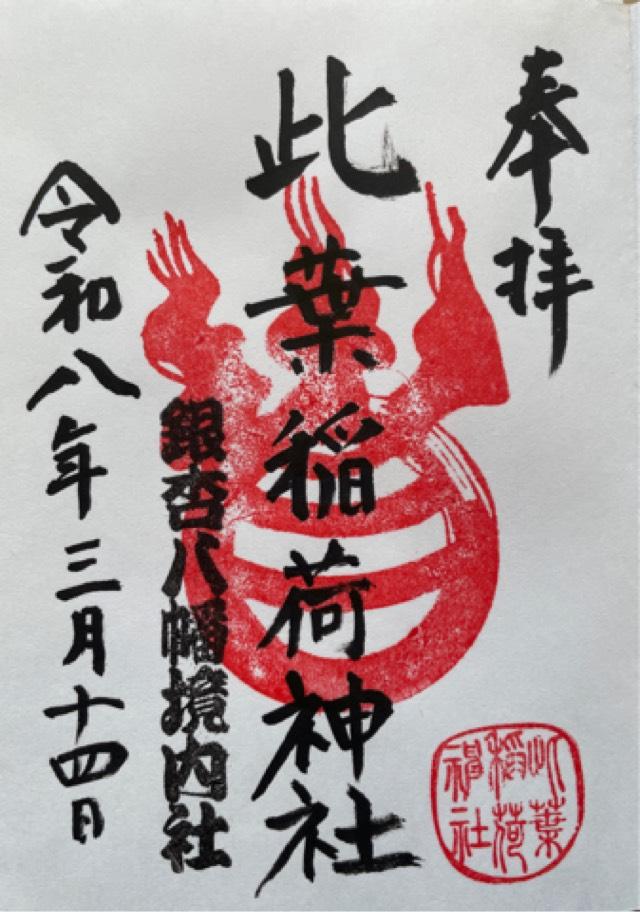 奉拝
此葉稲荷神社
銀杏八幡境内社
令和八年三月十四日
此葉
稲荷
神社